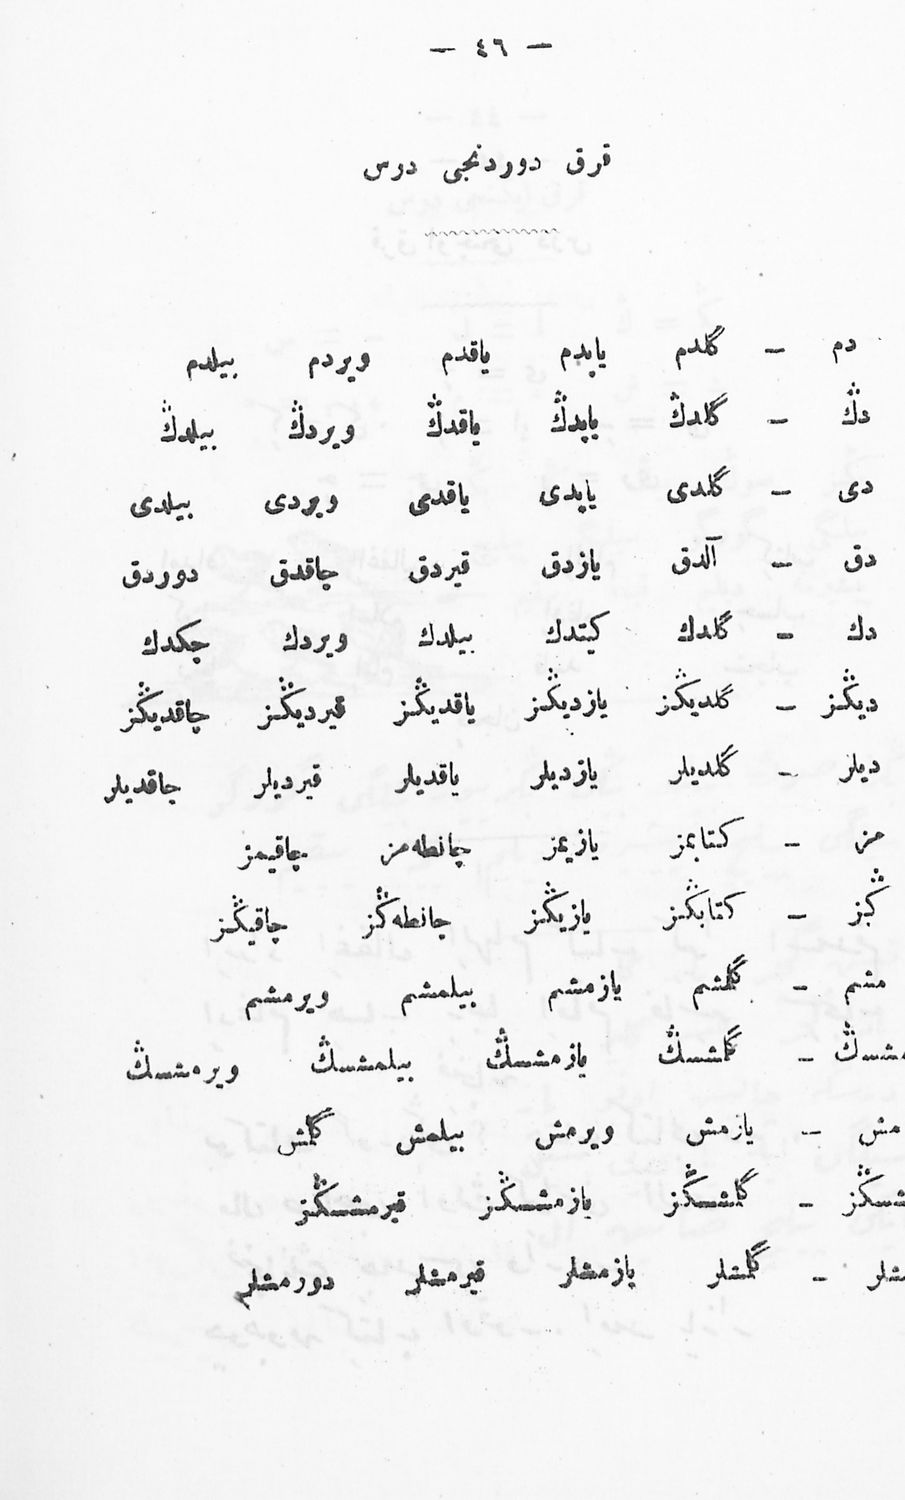 — ٤٦ —
قرق دوردنجی درس
دم — گلدم یاپدم یاقدم ویردم بیلدم
دڭ — گلدڭ یاپدڭ یاقدڭ ویردڭ بیلدڭ
دی — گلدی یاپدی یاقدی ویردی بیلدی
دق — آلدق یازدق قیردق چاقدق دوردق
دك — گلدك كیتدك بیلدك ویردك چكدك
دیڭز — گلدیڭز یازدیڭز یاقدیڭز قیردیڭز چاقدیڭز
دیلر — گلدیلر یازدیلر یاقدیلر قیردیلر چاقدیلر
مز — كتابمز یازیمز چانطه‌مز چاقیمز
ڭز — كتابڭز یازیڭز چانطه‌ڭز چاقیڭز
مشم — گلمشم یازمشم بیلمشم ویرمشم
مشسڭ — گلمشسڭ یازمشسڭ بیلمشسڭ ویرمشسڭ
مش — یازمش ویرمش بیلمش گلمش
شسڭز — گلمشسڭز یازمشسڭز قیرمشسڭز
شلر — گلمشلر یازمشلر قیرمشلر دورمشلر